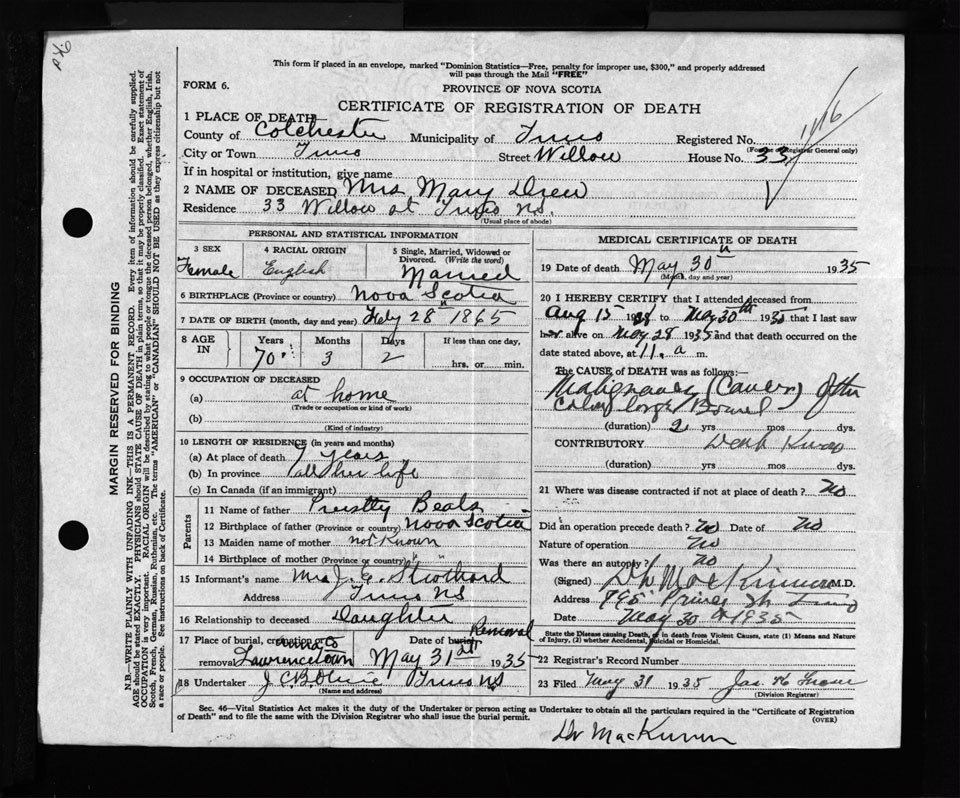 This form if placed in an envelope, marked "Dominion Statistics—Free, penalty for improper use, $300," and properly addressed
will pass through the Mail "FREE"
FORM 6.
PROVINCE OF NOVA SCOTIA
CERTIFICATE OF REGISTRATION OF DEATH
1116
1 PLACE OF DEATH
County of Colchester Municipality of Truro Registered No.
(For use of Registrar General only)
City or Town Truro Street Willow House No. 33
If in hospital or institution, give name
2 NAME OF DECEASED Mrs Mary Drew
Residence 33 Willow st Truro N.S.
(Usual place of abode)
PERSONAL AND STATISTICAL INFORMATION
3 SEX Female
4 RACIAL ORIGIN English
5 Single, Married, Widowed or Divorced. (Write the word) Married
6 BIRTHPLACE (Province or country) Nova Scotia
7 DATE OF BIRTH (month, day and year) Feby 28" 1865
8 AGE IN Years 70 Months 3 Days 2 If less than one day, hrs. or min.
9 OCCUPATION OF DECEASED
(a) at home
(Trade or occupation or kind of work)
(b)
(Kind of industry)
10 LENGTH OF RESIDENCE (in years and months)
(a) At place of death 7 years
(b) In province all her life
(c) In Canada (if an immigrant)
Parents
11 Name of father Beals
12 Birthplace of father (Province or country) Nova Scotia
13 Maiden name of mother not Known
14 Birthplace of mother (Province or country) " "
15 Informant's name Mrs J. E. Strothard
Address Truro NS
16 Relationship to deceased Daughter
17 Place of burial, cremation or removal Lawrencetown
Date of burial Removal May 31st 1935
18 Undertaker Truro NS
(Name and address)
MEDICAL CERTIFICATE OF DEATH
19 Date of death May 30" 1935
(Month, day and year)
20 I HEREBY CERTIFY that I attended deceased from
Aug 15 to May 30th 1935 that I last saw
her alive on May 28 1935 and that death occurred on the
date stated above, at 11. a m.
The CAUSE of DEATH was as follows:—
Malignancy (Cancer) of the
Colon Bowel
(duration) 2 yrs mos dys.
CONTRIBUTORY
(duration) yrs mos dys.
21 Where was disease contracted if not at place of death? No
Did an operation precede death? No Date of No
Nature of operation No
Was there an autopsy? No
(Signed) MacKinnon M.D.
Address 795 Prince St Truro
Date May 30th 1935
State the Disease causing Death, or in death from Violent Causes, state (1) Means and Nature
of Injury, (2) whether Accidental, Suicidal or Homicidal.
22 Registrar's Record Number
23 Filed 31 1935
(Division Registrar)
Sec. 46—Vital Statistics Act makes it the duty of the Undertaker or person acting as Undertaker to obtain all the particulars required in the "Certificate of Registration
of Death" and to file the same with the Division Registrar who shall issue the burial permit.
(OVER)
Dr MacKinnon
MARGIN RESERVED FOR BINDING
N.B.—WRITE PLAINLY WITH UNFADING INK—THIS IS A PERMANENT RECORD. Every item of information should be carefully supplied.
AGE should be stated EXACTLY. PHYSICIANS should STATE CAUSE OF DEATH in plain terms, so that it may be properly classified. Exact statement of
OCCUPATION is very important. RACIAL ORIGIN will be described by stating to what people or tongue the deceased person belonged, whether English, Irish,
Scotch, French, German, Russian, Ruthenian, etc. The terms "AMERICAN" or "CANADIAN" SHOULD NOT BE USED as they express citizenship but not
a race or people. See instructions on back of Certificate.